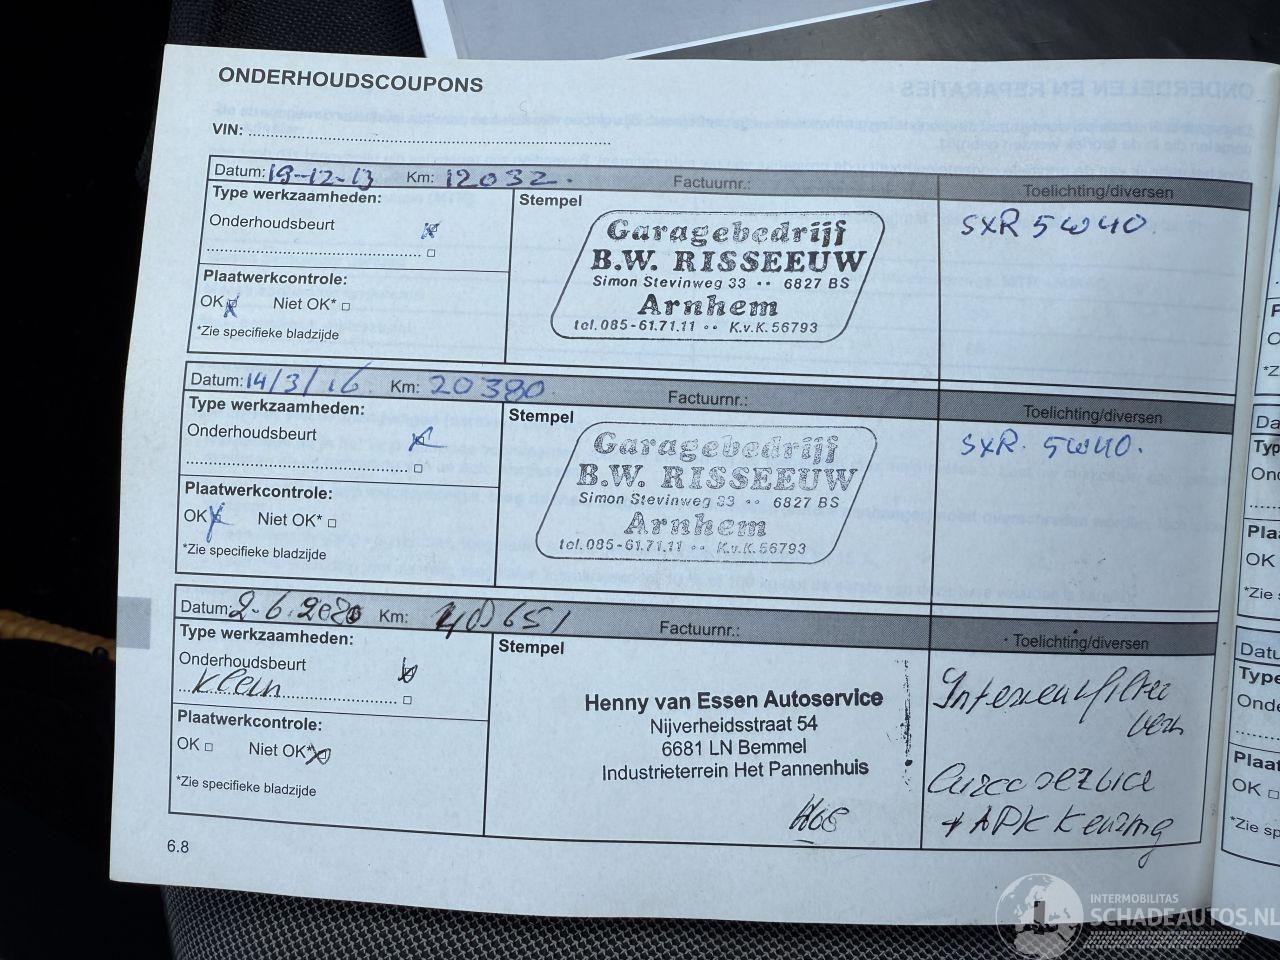 ONDERHOUDSCOUPONS
VIN:
Datum: 19-12-13 Km: 12032. Factuurnr.: Toelichting/diversen
Type werkzaamheden:
Onderhoudsbeurt
Plaatwerkcontrole:
OK Niet OK*
*Zie specifieke bladzijde
Stempel
Garagebedrijf
B.W. RISSEEUW
Simon Stevinweg 33 •• 6827 BS
Arnhem
tel. 085-61.71.11 •• K.v.K. 56793
SXR 5W40
Datum: 14/3/16. Km: 20380 Factuurnr.: Toelichting/diversen
Type werkzaamheden:
Onderhoudsbeurt
Plaatwerkcontrole:
OK Niet OK*
*Zie specifieke bladzijde
Stempel
Garagebedrijf
B.W. RISSEEUW
Simon Stevinweg 33 •• 6827 BS
Arnhem
tel. 085-61.71.11 •• K.v.K. 56793
SXR. 5W40.
Datum: 2-6.2020 Km: Factuurnr.: Toelichting/diversen
Type werkzaamheden:
Onderhoudsbeurt
Klein
Plaatwerkcontrole:
OK Niet OK*
*Zie specifieke bladzijde
Stempel
Henny van Essen Autoservice
Nijverheidsstraat 54
6681 LN Bemmel
Industrieterrein Het Pannenhuis
service
+ APK Keuring
6.8
INTERMOBILITAS
SCHADEAUTOS.NL